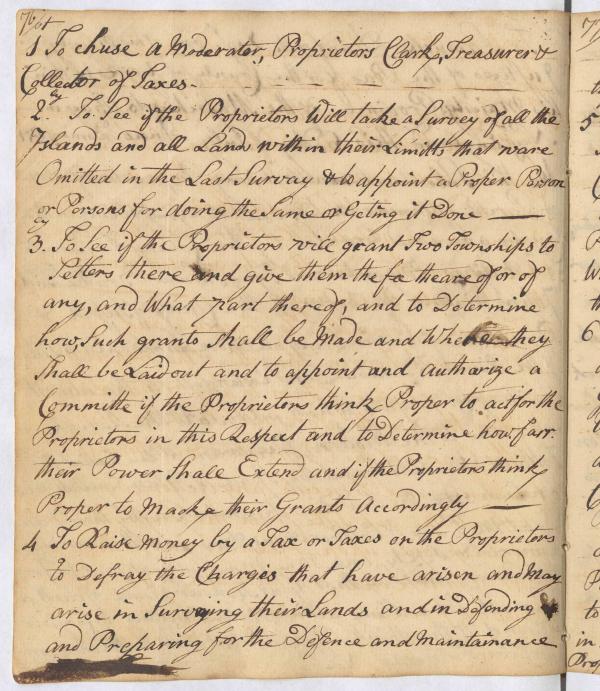 76
1st To chuse a Moderator, Proprietors Clark, Treasurer &
Collector of Taxes.
2ly. To See if the Proprietors Will tacke a Survey of all the
Islands and all Lands within their Limitts that ware
Omitted in the Last Survay & to appoint a Proper Person
or Persons for doing the Same or Geting it Done —
3ly. To See if the Proprietors will grant Two Townships to
Setlers there and give them the fee theareof or of
any, and What part thereof, and to Determine
how Such grants Shall be Made and Where they
Shall be Laid out and to appoint and autharize a
Committe if the Proprietors think Proper to act for the
Proprietors in this Respect and to Determine how farr
their Power Shall Extend and if the Proprietors think
Proper to Macke their Grants Accordingly —
4 To Raise Money by a Tax or Taxes on the Proprietors
to Defray the Charges that have arisen and May
arise in Surveying their Lands and in Defending
and Preparing for the Defence and Maintainance
77
5
6